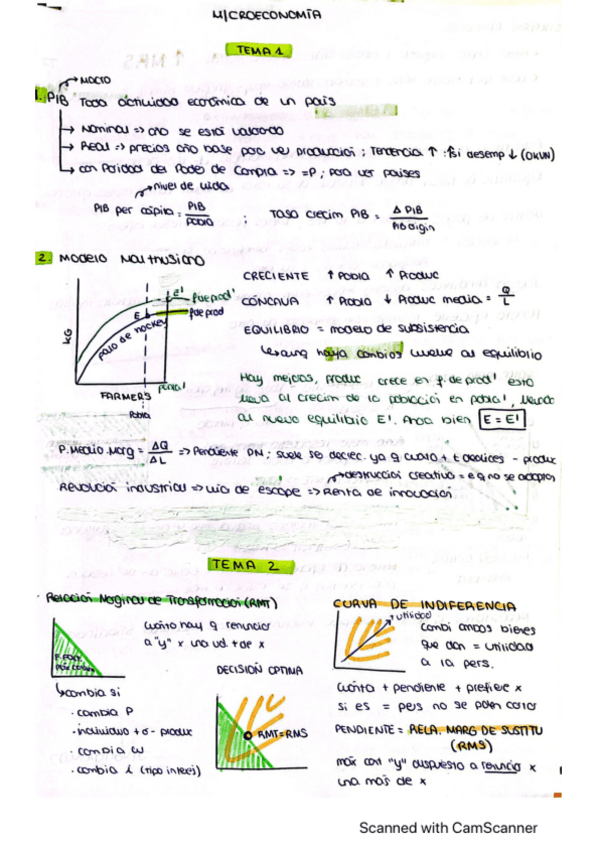 MICROECONOMÍA
TEMA 1
→ MACRO
1. PIB Toda actividad económica de un país
→ Nominal => año se está valorado
→ Real => precios año base para ver producción ; Tendencia ↑ : si desemp ↓ (OKUN)
→ con Paridad del Poder de Compra => = P ; para ver países
→ nivel de vida
PIB per cápita = PIB / Pobla ; Tasa crecim PIB = Δ PIB / PIB origin
2. MODELO Malthusiano
CRECIENTE ↑ Pobla ↑ Produc
CÓNCAVA ↑ Pobla ↓ Produc media = Q / L
EQUILIBRIO = modelo de subsistencia
↳ aunq haya cambios vuelve al equilibrio
KG
E'
f de prod'
E
f de prod
palo de hockey
FARMERS
pobla'
Pobla
Hay mejoras, produc crece en f. de prod' esto
lleva al crecim de la población en pobla',
al nuevo equilibrio E'. Ahora bien E = E'
P. Medio. Marg = ΔQ / ΔL => Pendiente PN ; suele ser decrec. ya q cuanto + t dedices - produc
→ destrucción creativa = e q no se adaptan
Revolución industrial => vía de escape => Renta de innovación
TEMA 2
· Relación Marginal de Transformación (RMT)
cuánto hay q renunciar
a "y" x una ud + de x
↳ cambia si
· cambia P
· individuo + ó - produc
· cambia w
· cambia i (tipo interés)
DECISIÓN OPTIMA
RMT = RMS
CURVA DE INDIFERENCIA
utilidad
Combi ambos bienes
que dan = utilidad
a la pers.
cuánta + pendiente + prefiere x
si es = pers no se pueden cortar
PENDIENTE = RELA. MARG DE SUSTITU
(RMS)
máx cant "y" dispuesto a renunciar x
una más de x
Scanned with CamScanner